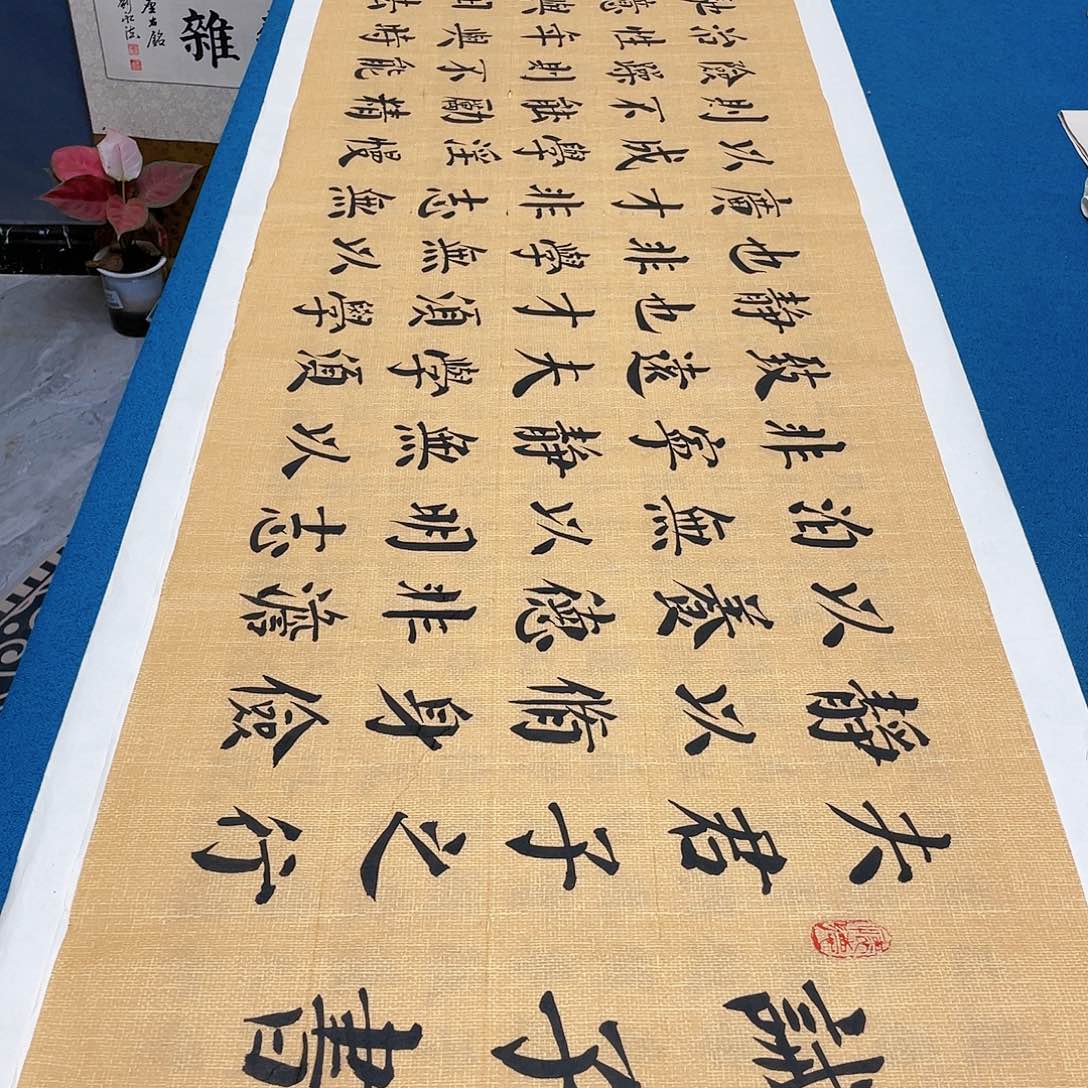 誡子書
夫君子之行
静以脩身儉
以養德非澹
泊無以明志
非寧静無以
致遠夫學須
静也才須學
也非學無以
廣才非志無
以成學淫慢
則不能勵精
險躁則不能
治性年與時
雜